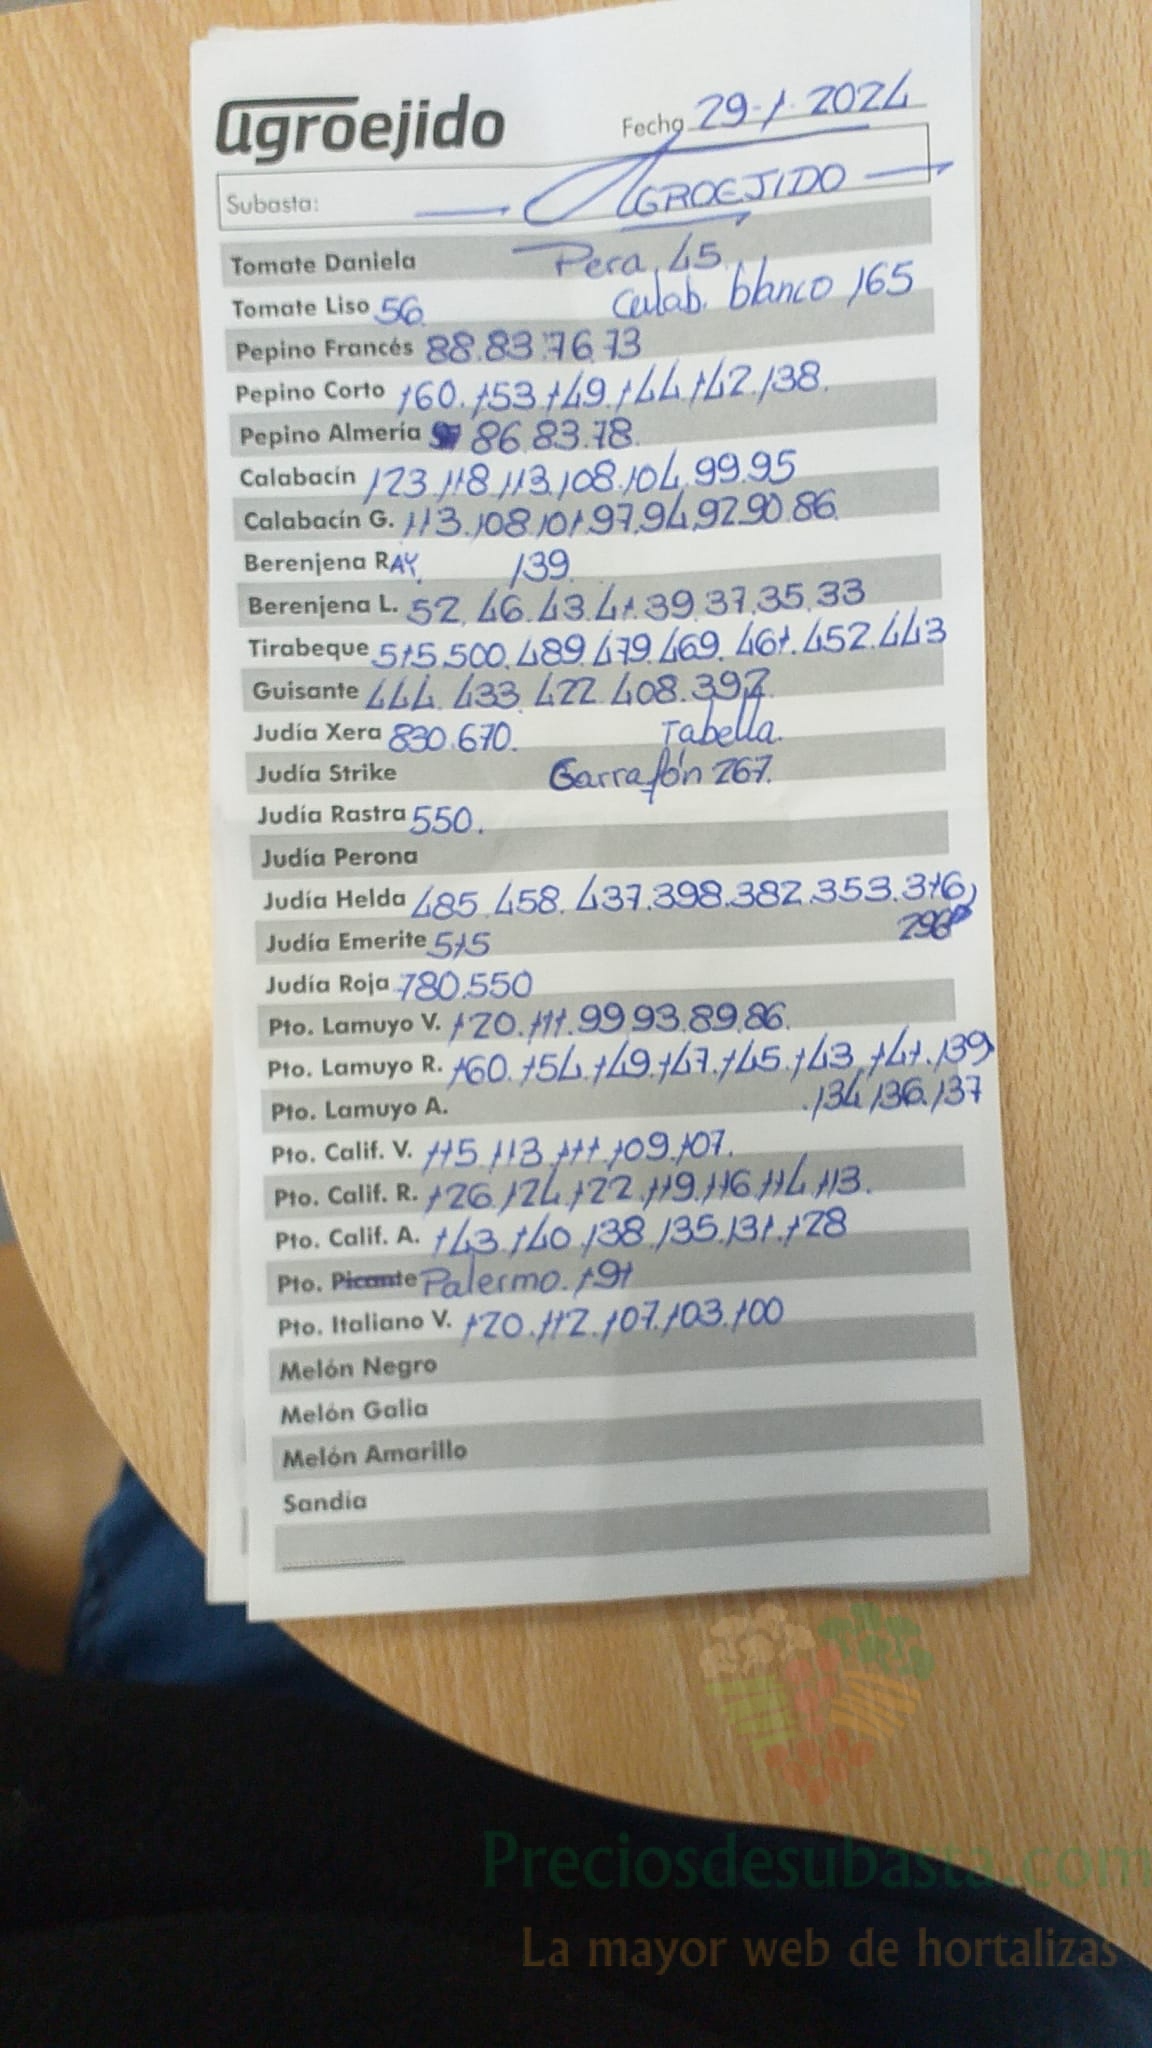 agroejido
Fecha 29-1-2024
Subasta: AGROEJIDO
Tomate Daniela Pera 45
Tomate Liso 56. Calab. blanco 165
Pepino Francés 88.83.76.73
Pepino Corto 160.153.149.144.142.138.
Pepino Almería 86.83.78.
Calabacín 123.118.113.108.104.99.95
Calabacín G. 113.108.101.97.94.92.90.86.
Berenjena RAY. 139
Berenjena L. 52.46.43.41.39.37.35.33
Tirabeque 515.500.489.479.469.461.452.443
Guisante 444.433.422.408.397.
Judía Xera 830.670. Tabella.
Judía Strike Garrafón 267.
Judía Rastra 550.
Judía Perona
Judía Helda 485.458.437.398.382.353.316
Judía Emerite 515
Judía Roja 780.550
Pto. Lamuyo V. 120.111.99.93.89.86.
Pto. Lamuyo R. 160.154.149.147.145.143.141.139
Pto. Lamuyo A. .134.136.137
Pto. Calif. V. 115.113.111.109.107.
Pto. Calif. R. 126.124.122.119.116.114.113.
Pto. Calif. A. 143.140.138.135.131.128
Pto. Picante Palermo. 191
Pto. Italiano V. 120.112.107.103.100
Melón Negro
Melón Galia
Melón Amarillo
Sandía
Preciosdesubasta.com
La mayor web de hortalizas